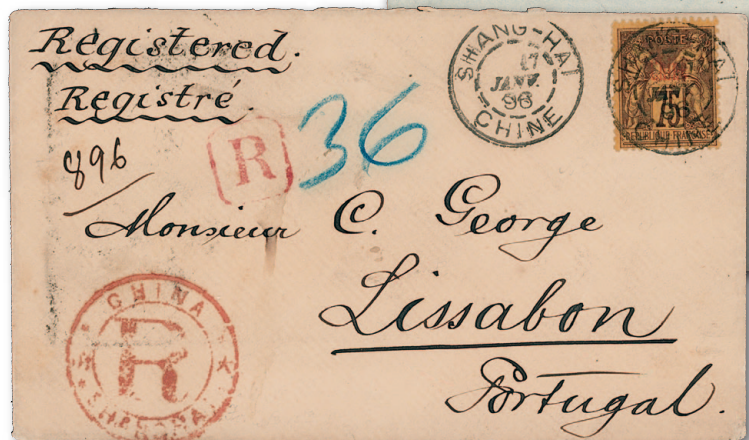 Registered.
Registré.
896
R
36
SHANG-HAI
17
JANV.
96
CHINE
75
REPUBLIQUE FRANÇAISE
Monsieur C. George
Lissabon
Portugal.
CHINA
R
SHANGHAI